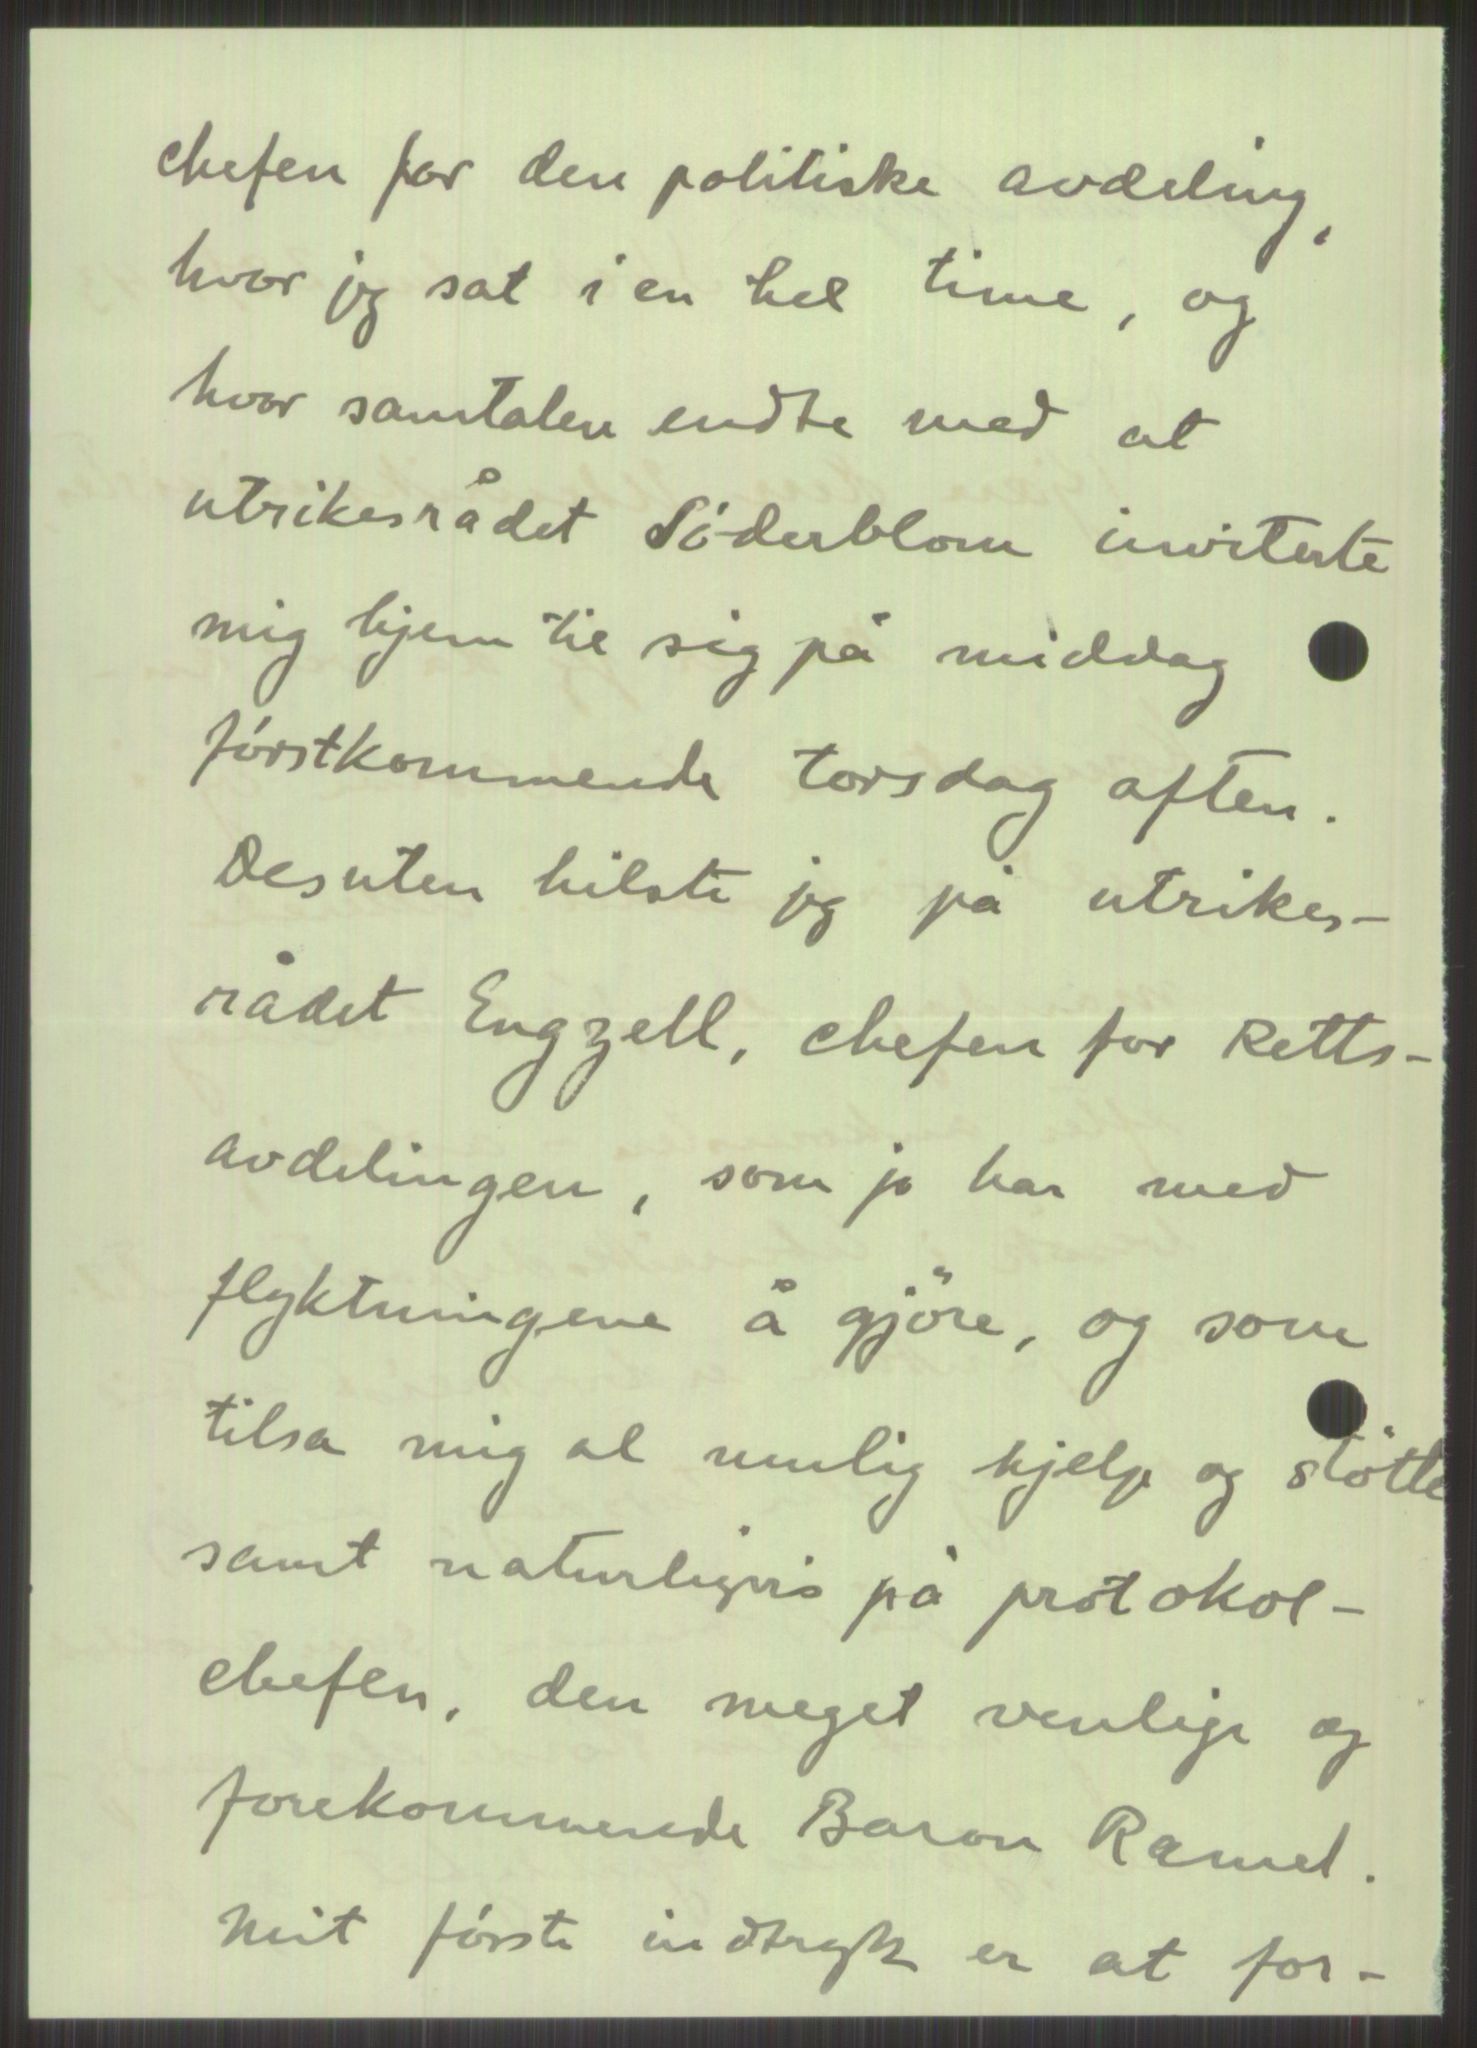 chefen for den politiske avdeling,
hvor jeg sat i en hel time, og
hvor samtalen endte med at
utrikesrådet Söderblom inviterte
mig hjem til sig på middag
förstkommende torsdag aften.
Desuten hilste jeg på utrikes-
rådet Engzell, chefen for Retts-
avdelingen, som jo har med
flyktningene å gjöre, og som
tilsa mig al mulig hjelp og stötte
samt naturligvis på protokol-
chefen, den meget venlige og
forekommende Baron Ramel.
Mit förste indtryk er at for-